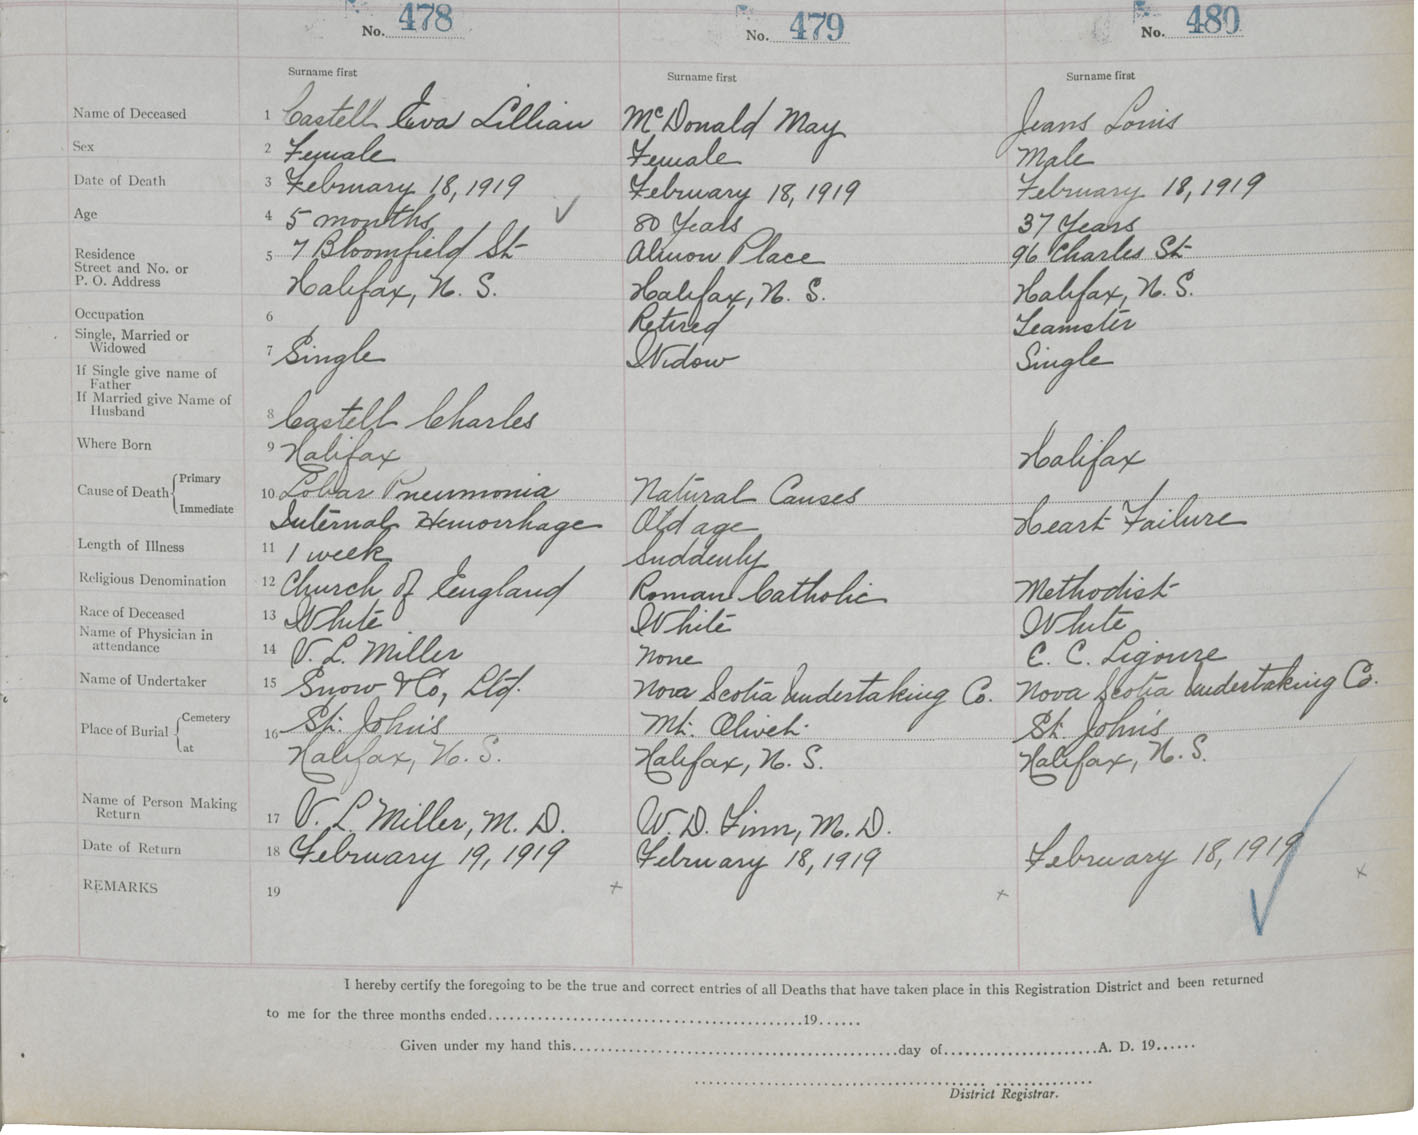 No. 478 No. 479 No. 480
Surname first Surname first Surname first
Name of Deceased 1 Castell Eva Lillian McDonald May Jeans Louis
Sex 2 Female Female Male
Date of Death 3 February 18, 1919 February 18, 1919 February 18, 1919
Age 4 5 months 80 Years 37 Years
Residence 5 7 Bloomfield St. Almon Place 96 Charles St.
Street and No. or
P. O. Address Halifax, N. S. Halifax, N. S. Halifax, N. S.
Occupation 6 Retired Teamster
Single, Married or
Widowed 7 Single Widow Single
If Single give name of
Father
If Married give Name of
Husband 8 Castell Charles
Where Born 9 Halifax Halifax
Cause of Death Primary 10 Lobar Pneumonia Natural Causes
Immediate Internal Hemorrhage Old age Heart Failure
Length of Illness 11 1 week Suddenly
Religious Denomination 12 Church of England Roman Catholic Methodist
Race of Deceased 13 White White White
Name of Physician in
attendance 14 V. L. Miller None C. C. Ligoure
Name of Undertaker 15 Snow & Co, Ltd. Nova Scotia Undertaking Co. Nova Scotia Undertaking Co.
Place of Burial Cemetery 16 St. John's Mt. Olivet St. John's
at Halifax, N. S. Halifax, N. S. Halifax, N. S.
Name of Person Making
Return 17 V. L. Miller, M. D. W. D. Finn, M. D.
Date of Return 18 February 19, 1919 February 18, 1919 February 18, 1919
REMARKS 19
I hereby certify the foregoing to be the true and correct entries of all Deaths that have taken place in this Registration District and been returned
to me for the three months ended..........19......
Given under my hand this..........day of..........A. D. 19......
District Registrar.